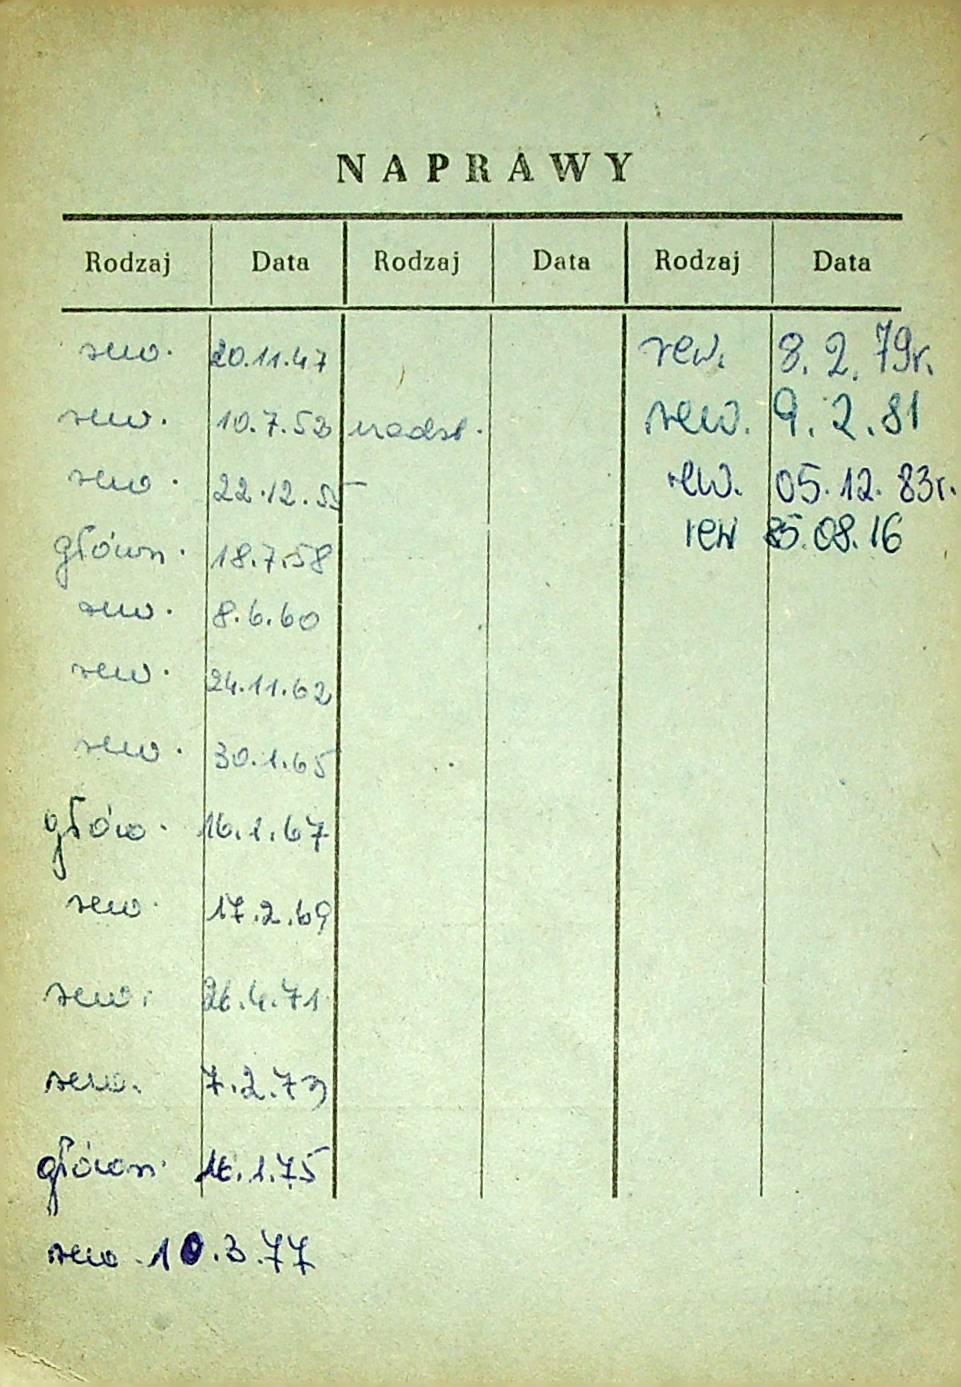 NAPRAWY
Rodzaj Data Rodzaj Data Rodzaj Data
rew. 20.11.47 rew. 8.2.79r.
rew. 10.7.53 nadst. rew. 9.2.81
rew. 22.12.55 rew. 05.12.83r.
główn. 18.7.58 rew 85.08.16
rew. 8.6.60
rew. 24.11.62
rew. 30.1.65
głów. 16.1.67
rew. 17.2.69
rew. 26.4.71
rew. 7.2.73
główn. 16.1.75
rew. 10.3.77